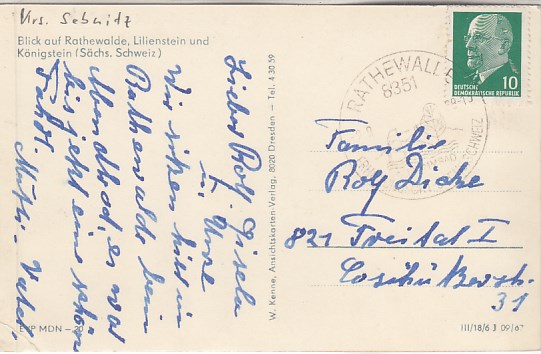 Krs. Sebnitz
Blick auf Rathewalde, Lilienstein und
Königstein (Sächs. Schweiz)
Lieber Rolf, Gisela
u. Uwe
Wir sitzen hier in
Rathewalde beim
Abendbrot, es war
bis jetzt eine schöne
Fahrt. Mutti. Vater
EVP MDN –20
W. Kenne, Ansichtskarten-Verlag, 8020 Dresden – Tel. 4 30 59
RATHEWALDE
8351
SCHWEIZ
DEUTSCHE
DEMOKRATISCHE REPUBLIK
10
Familie
Rolf Dicke
821 Freital I
31
III/18/6 J 09/67